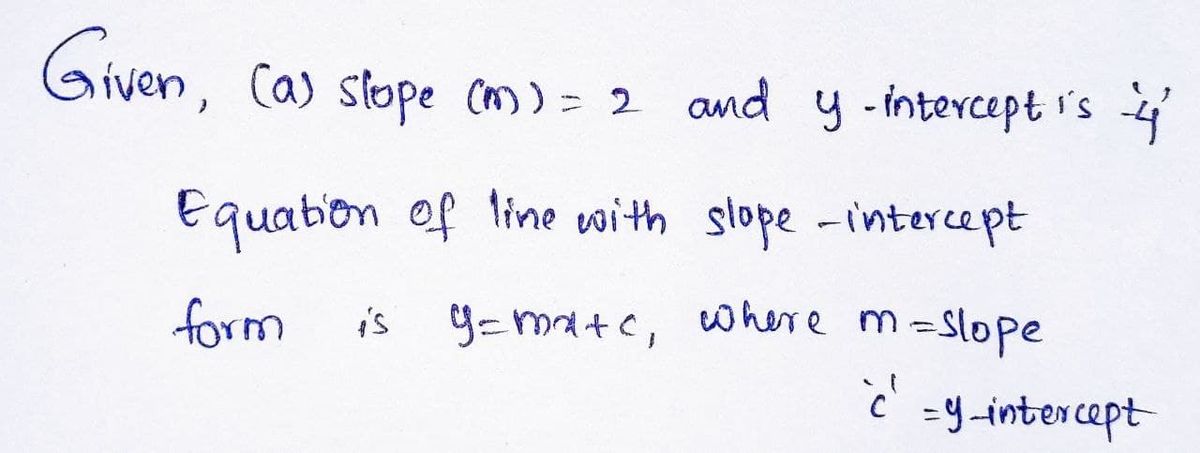 Given, (a) slope (m) = 2 and y-intercept is '4'
Equation of line with slope-intercept
form is y=mx+c, where m=slope
'c' =y-intercept